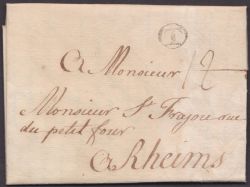 A Monsieur 12
Monsieur St Frajou rue
du petit four
A Rheims